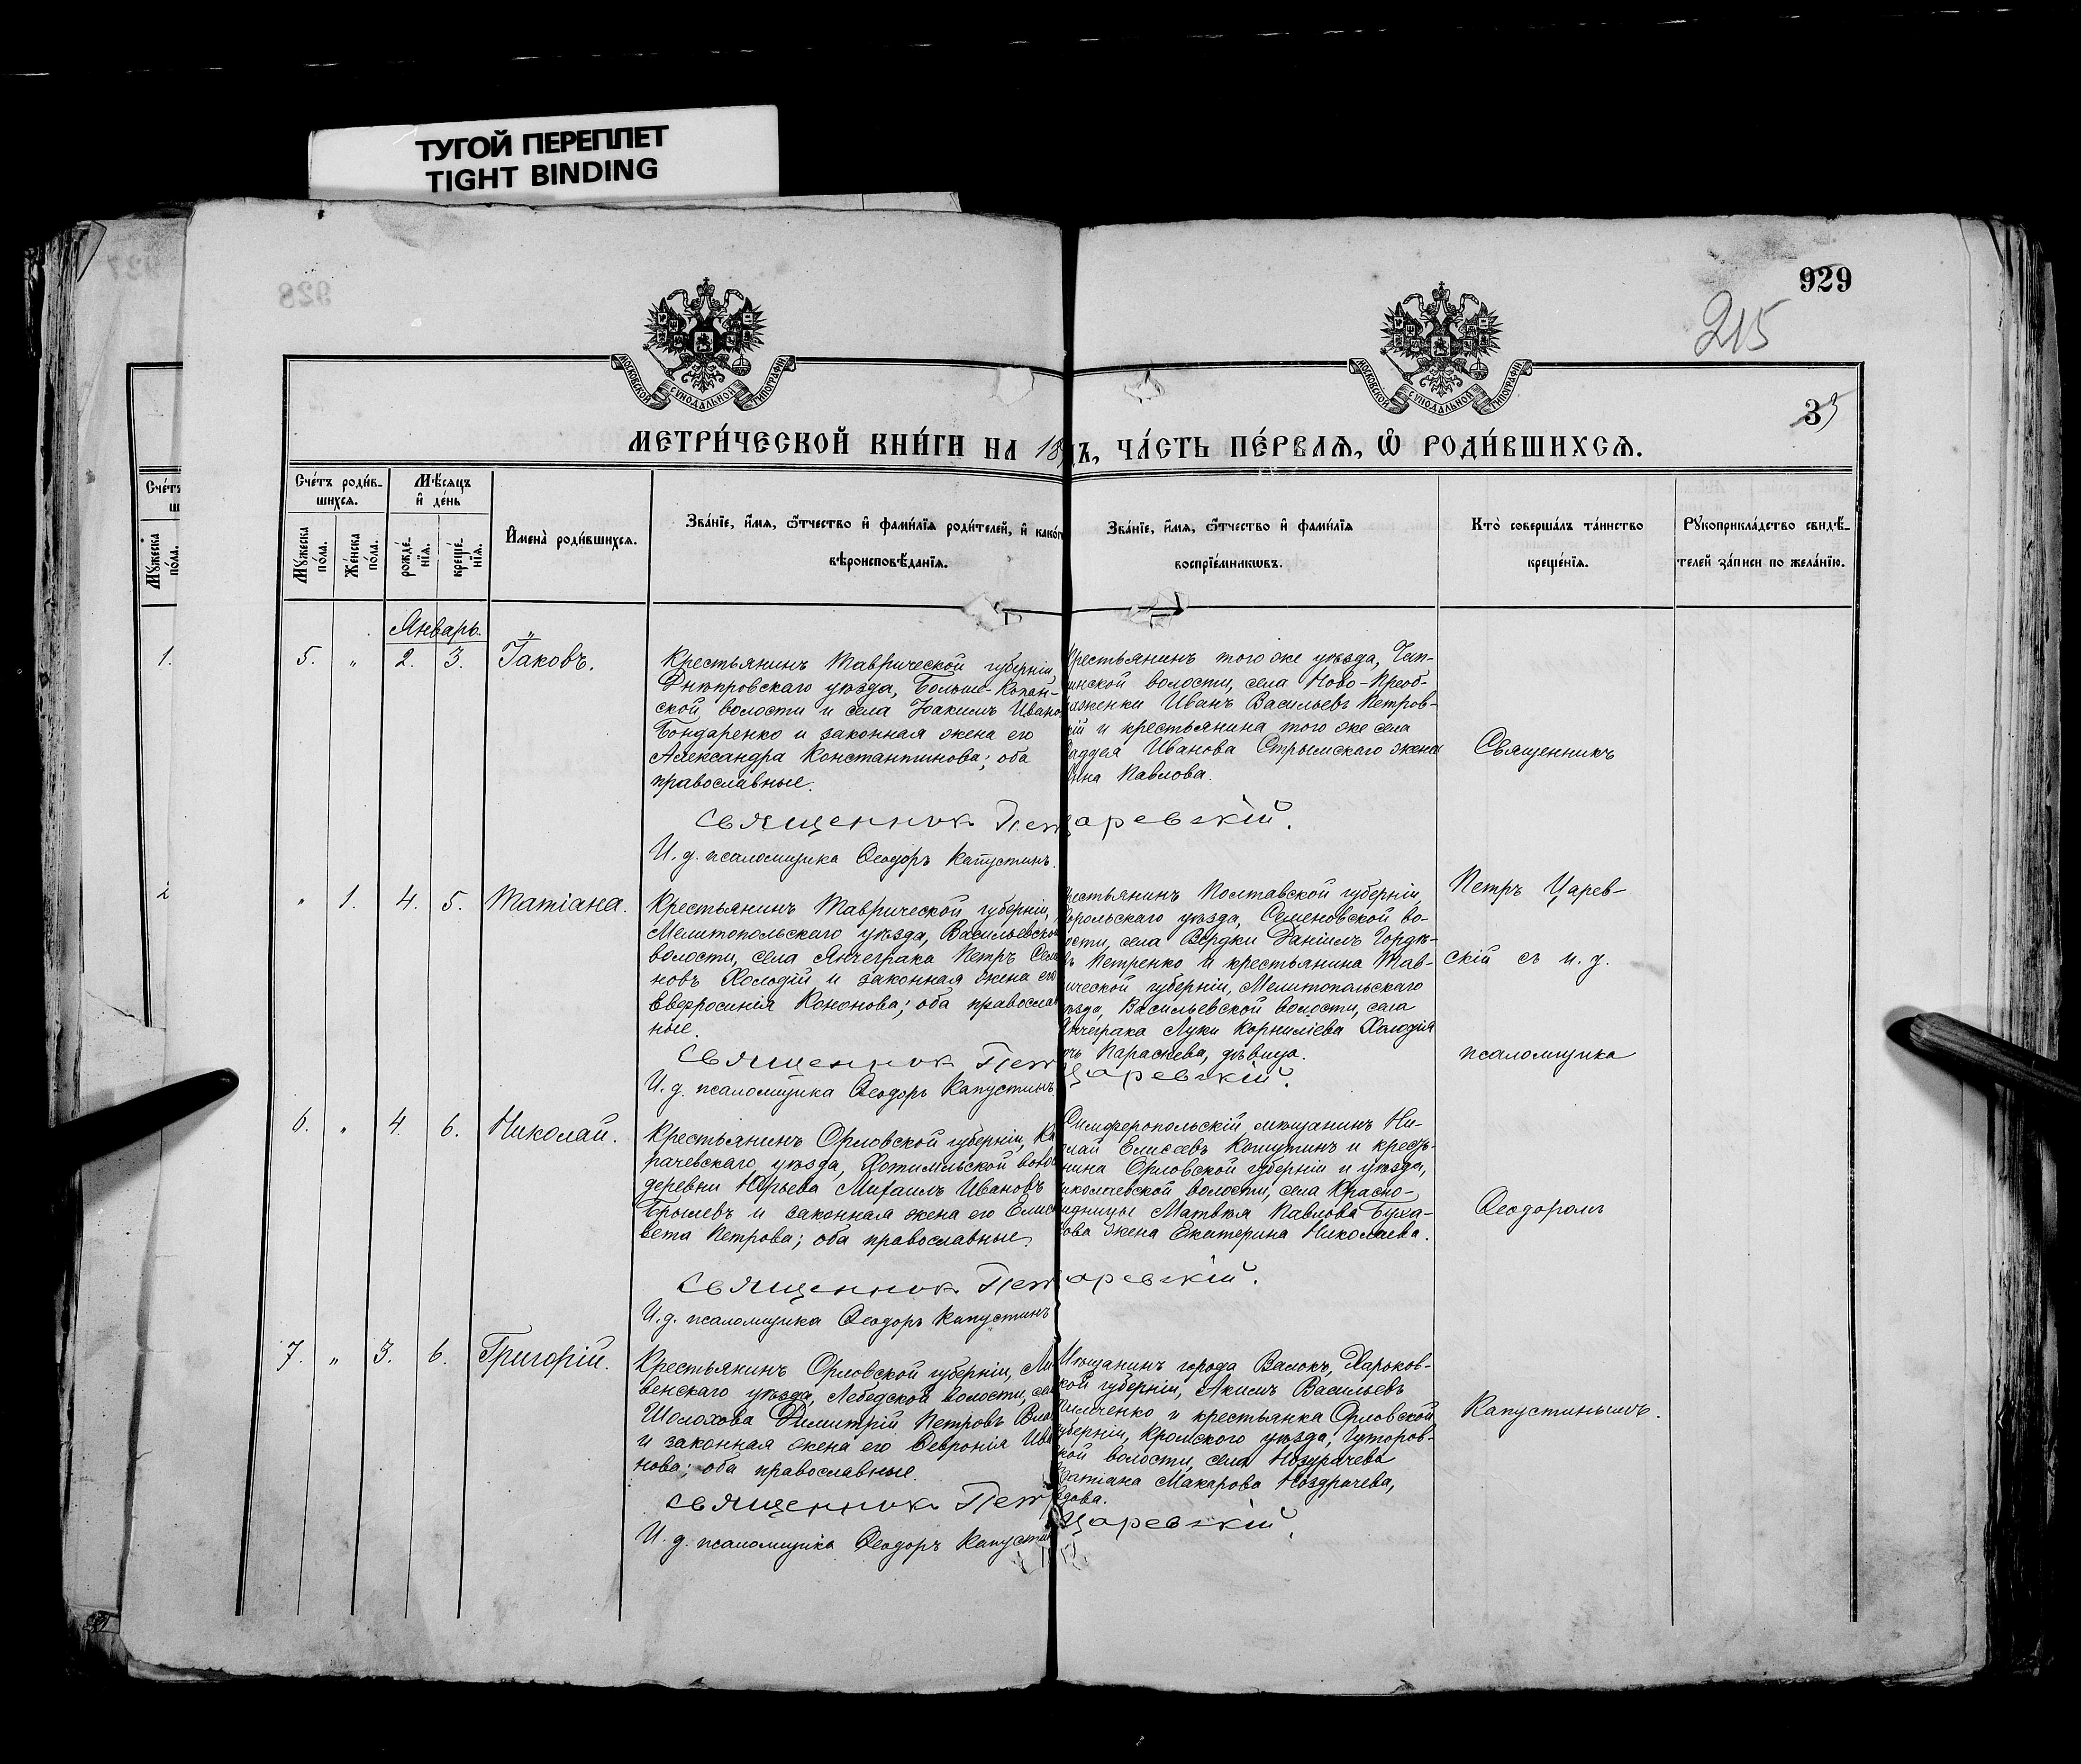 ТУГОЙ ПЕРЕПЛЕТ
TIGHT BINDING
927
928
929
215
МОСКОВСКОЙ СѴНОДАЛЬНОЙ ТИПОГРАФІИ
МОСКОВСКОЙ СѴНОДАЛЬНОЙ ТИПОГРАФІИ
33
МЕТРИ́ЧЕСКОЙ КНИ́ГИ НА 18 ДЪ, ЧА́СТЬ ПЕ́РВАѦ, Ѡ РОДИ́ВШИХСѦ.
Сче́тъ
ш
Мꙋ́жеска по́ла.
1.
2
Сче́тъ роди́в-
шихсѧ.
Мѣ́сѧцъ
и҆ де́нь
Мꙋ́жеска по́ла.
Же́нска по́ла.
рожде́-нїѧ.
креще́-нїѧ.
И҆мена̀ роди́вшихсѧ.
Зва́нїе, и҆́мѧ, ѻ҆́тчество и҆ фами́лїѧ роди́телей, и҆ како́г
вѣроисповѣ́данїѧ.
Зва́нїе, и҆́мѧ, ѻ҆́тчество и҆ фами́лїѧ
воспрїе́мникѡвъ.
Кто̀ соверша́лъ та́инство
креще́нїѧ.
Рꙋкоприкла́дство свидѣ́-
телей за́писи по жела́нїю.
Январь.
5. " 2. 3. Іаковъ.
Крестьянинъ Таврической губерніи,
Днѣпровскаго уѣзда, Больше-Копан-
ской волости и села Іоакимъ Ивано
Бондаренко и законная жена его
Александра Константинова; оба
православные.
Священникъ Пет
И. д. псаломщика Ѳеодоръ Капустинъ.
рестьянинъ того же уѣзда, Чап-
инской волости, села Ново-Преоб-
аженки Иванъ Васильевъ Петров-
кій и крестьянина того же села
аддея Иванова Стрымскаго жена
нна Павлова.
аревскій.
Священникъ
" 1. 4. 5. Татіана.
Крестьянинъ Таврической губерніи,
Мелитопольскаго уѣзда, Васильевско
волости, села Янчеграка Петръ Семе
новъ Холодій и законная жена его
Евфросинія Кононова; оба православ
ные.
Священникъ Пет
И. д. псаломщика Ѳеодоръ Капустинъ.
рестьянинъ Полтавской губерніи,
орольскаго уѣзда, Семеновской во-
ости, села Вергки Даніилъ Гордѣ-
въ Петренко и крестьянина Тав-
ической губерніи, Мелитопольскаго
ѣзда, Васильевской волости, села
Янчеграка Луки Корниліева Холодія
очь Параскева, дѣвица.
Царевскій.
Петръ Царев-
скій съ и. д.
псаломщика
6. " 4. 6. Николай.
Крестьянинъ Орловской губерніи, Ка
рачевскаго уѣзда, Хотимльской воло
деревни Юрьева Михаилъ Ивановъ
Брылевъ и законная жена его Елиса
вета Петрова; оба православные.
Священникъ Пет
И. д. псаломщика Ѳеодоръ Капустинъ
Симферопольскій мѣщанинъ Ни-
лай Елисеевъ Кашутинъ и кресть-
нина Орловской губерніи и уѣзда,
волости, села Красно-
Матвѣя Павлова Буха-
ова жена Екатерина Николаева.
аревскій.
Ѳеодоромъ
7. " 5. 6. Григорій.
Крестьянинъ Орловской губерніи, Ли
венскаго уѣзда, Лебедской волости, сел
Шолохова Димитрій Петровъ Вла
и законная жена его Ѳевронія Ива
нова; оба православные.
Священникъ Пет
И. д. псаломщика Ѳеодоръ Капустин
Мѣщанинъ города Валокъ, Харьков-
кой губерніи, Акимъ Васильевъ
и крестьянка Орловской
уберніи, Кромскаго уѣзда, Гуторов-
кой волости, села Ноздрачева
Татіана Макарова Ноздрачева,
дова.
Царевскій.
Капустинымъ.